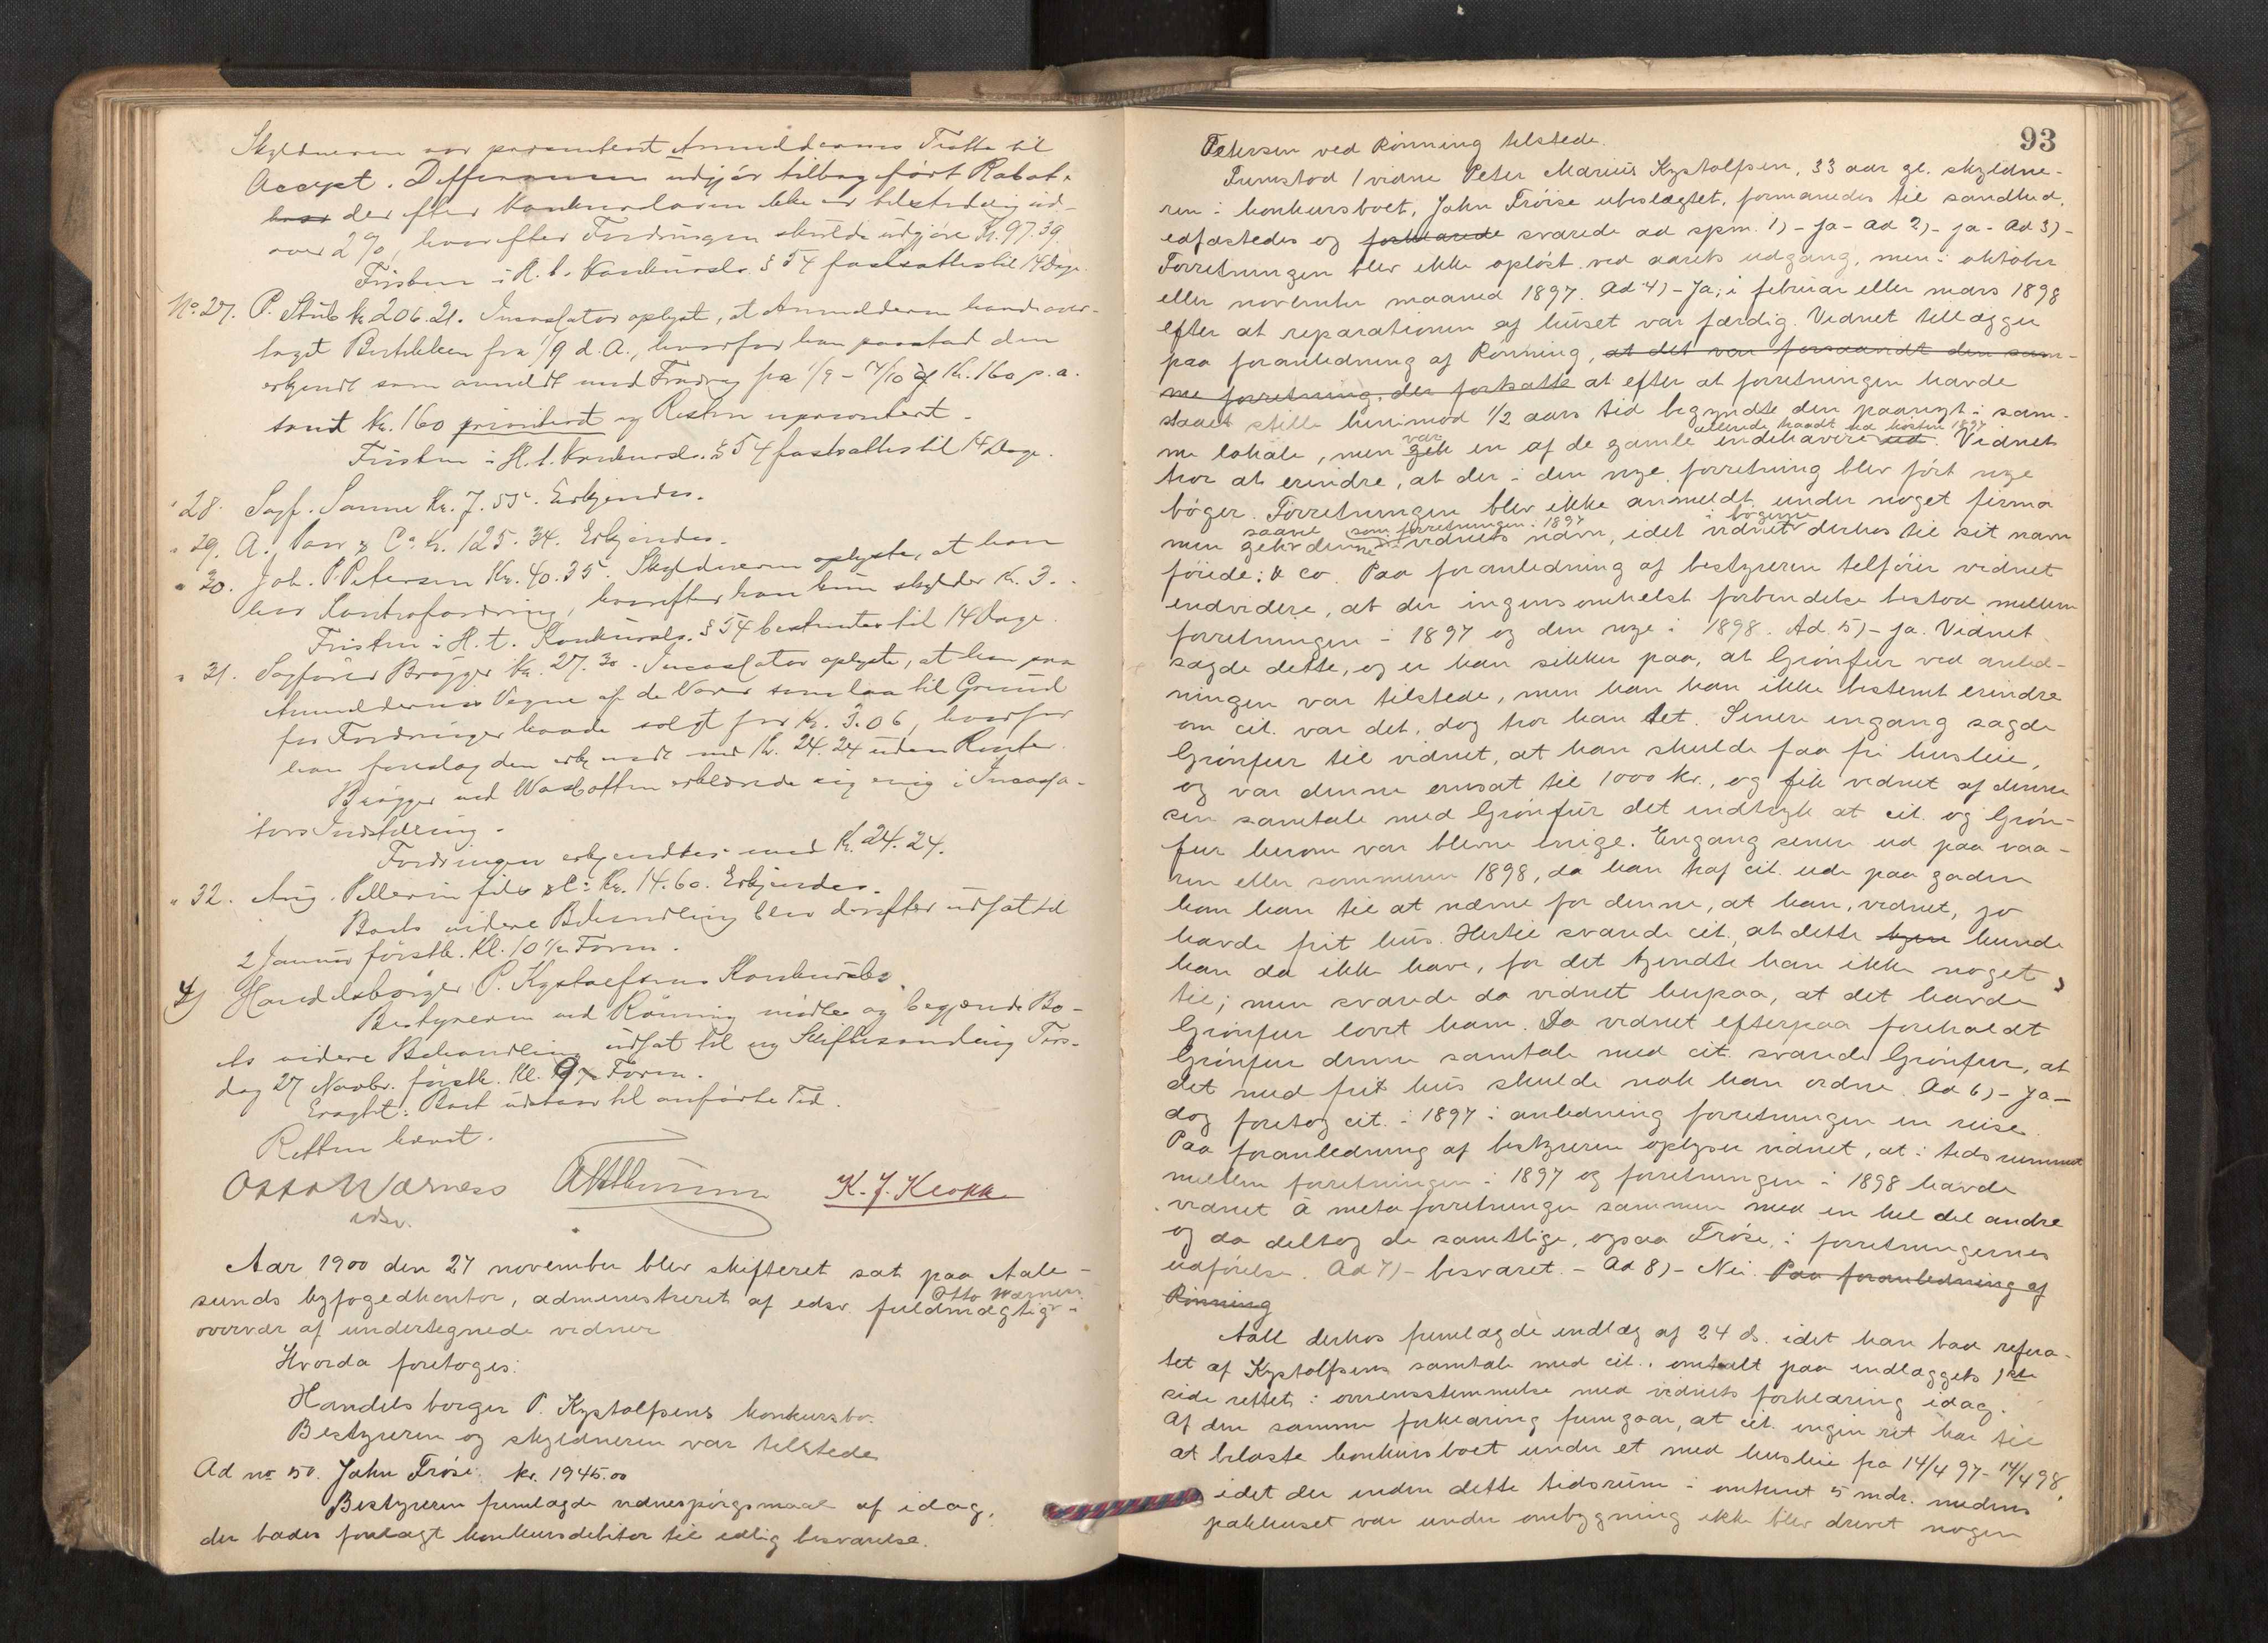 Skyldneren var presenteret Anmelderens Tratte til
Accept. Differencen udgjør tilbageført Rabat,
der efter Konkursloven ikke er tilstedelig ud-
over 2 %, hvorefter Fordringen skulde udgjøre Kr. 97.39.
Fristen i H. t. Konkursl. § 54 fastsattes til 14 Dage.
No. 27. P. Stub kr 206.21. Incassator oplyste, at Anmelderen havde over-
taget Butikken fra 1/9 d. A., hvorfor han paastod den
erkjendt som anmeldt med Fradrag fra 1/9 - 14/10 af Kr. 160 p. a.
samt Kr. 160 prioritert og Resten uprioritert.
Fristen i H. t. Konkursl. § 54 fastsattes til 14 Dage.
" 28. Sagf. Sanne Kr. 7.55. Erkjendes.
" 29. A. & Co Kr. 125.34. Erkjendes.
" 30. Joh. P. Petersen Kr. 40.35. Skyldneren oplyste, at han
har Kontrafordring, hvorefter han kun skylder Kr. 3.
Fristen i H. t. Konkursl. § 54 bestemtes til 14 Dage.
" 31. Sagfører Brøgger Kr. 27.30. Incassator oplyste, at han paa
Anmelderens Vegne af de Varer som laa til Grund
for Fordringen havde solgt for Kr. 3.06, hvorfor
han foreslog den erkjendt med Kr. 24.24 uden Renter.
Brøgger ved erklærede sig enig i Incassa-
tors Indstilling.
Fordringen erkjendtes med Kr. 24.24.
" 32. Aug. Pellerin fils & Co Kr. 14.60. Erkjendes.
Boets videre Behandling blev derefter udsat til
2 Januar førstk. Kl. 10 1/2 Form.
4) Handelsborger P. Kystolfsens Konkursbo.
Bestyreren ved Rønning mødte og begjærede Bo-
ets videre Behandling udsat til ny Skiftesamling Tirs-
dag 27 Novbr. førstk. Kl. 9 1/2 Form.
Eragtet: Boet udstaar til anførte Tid.
Retten hævet.
Otto Værness K. J. Kropp
edsv.
Aar 1900 den 27 november blev skifteret sat paa Aale-
sunds byfogedkontor, administreret af edsv. fuldmægtig Otto Værness i
overvær af undertegnede vidner
Hvorda foretoges:
Handelsborger P. Kystolfsens konkursbo.
Bestyreren og skyldneren var tilstede
Ad no 50. John Trøse. kr. 1945.00
Bestyreren fremlagde vidnespørgsmaal af idag,
der bades forelagt konkursdebitor til edlig besvarelse.
93
Petersen ved Rønning tilstede.
Fremstod 1 vidne Peter Marius Kystolfsen, 33 aar gl. skyldne-
ren i konkursboet, John Trøise ubeslægtet, formanedes til sandhed,
edfæstedes og forklarede svarede ad spm. 1) - ja - ad 2) - ja - Ad 3) -
Forretningen blev ikke opløst ved aarets udgang, men i oktober
eller november maaned 1897. Ad 4) - Ja, i februar eller mars 1898
efter at reparationen af huset var færdig. Vidnet tillægger
paa foranledning af Rønning, at det var forsaavidt den sam-
me forretning, der fortsatte at efter at forretningen havde
staaet stille henimod 1/2 aars tid begyndte den paanyt i sam-
me lokale, men var gik en af de gamle indehavere allerede traadt ud høsten 1897 ud. Vidnet
tror at erindre, at der i den nye forretning blev ført nye
bøger. Forretningen blev ikke anmeldt under noget firma
men saavel denne som forretningen i 1897 vidnets navn, idet vidnet i bøgerne derhos til sit navn
føiede: & Co. Paa foranledning af bestyreren tilføier vidnet
endvidere, at der ingensomhelst forbindelse bestod mellem
forretningen i 1897 og den nye i 1898. Ad 5) - ja. Vidnet
sagde dette, og er han sikker paa, at Grønfur ved anled-
ningen var tilstede, men han kan ikke bestemt erindre
om cit. var det, dog tror han det. Senere engang sagde
Grønfur til vidnet, at han skulde faa fri husleie,
og var denne ansat til 1000 kr., og fik vidnet af denne
sin samtale med Grønfur det indtryk at cit. og Grøn-
fur herom var blevne enige. Engang senere ud paa vaa-
ren eller sommeren 1898, da han traf cit. ude paa gaden
kom han til at nævne for denne, at han, vidnet, jo
havde frit hus. Hertil svarede cit. at dette kjen kunde
han da ikke have, for det kjendte han ikke noget
til; men svarede da vidnet herpaa, at det havde
Grønfur lovet ham. Da vidnet efterpaa foreholdt
Grønfur denne samtale med cit. svarede Grønfur, at
det med frit hus skulde nok han ordne. Ad 6) - Ja -
dog foretog cit. i 1897 i anledning forretningen en reise.
Paa foranledning af bestyreren oplyser vidnet, at i tidsrummet
mellem forretningen i 1897 og forretningen i 1898 havde
vidnet à meta forretninger sammen med en hel del andre
og da deltog de samtlige, ogsaa Trøse, i forretningernes
udførelse. Ad 7) - besvaret. - Ad 8) - Nei. Paa foranledning af
Rønning
Aall derhos fremlagde indlæg af 24 ds. idet han bad refera-
tet af Kystolfsens samtale med cit., omtalt paa indlæggets 1ste
side rettet i overensstemmelse med vidnets forklaring idag.
Af den samme forklaring fremgaar, at cit. ingen ret har til
at belaste konkursboet under et med husleie fra 14/4 97 - 14/4 98,
idet der inden dette tidsrum i omtrent 5 mdr. medens
pakhuset var under ombygning ikke blev drevet nogen